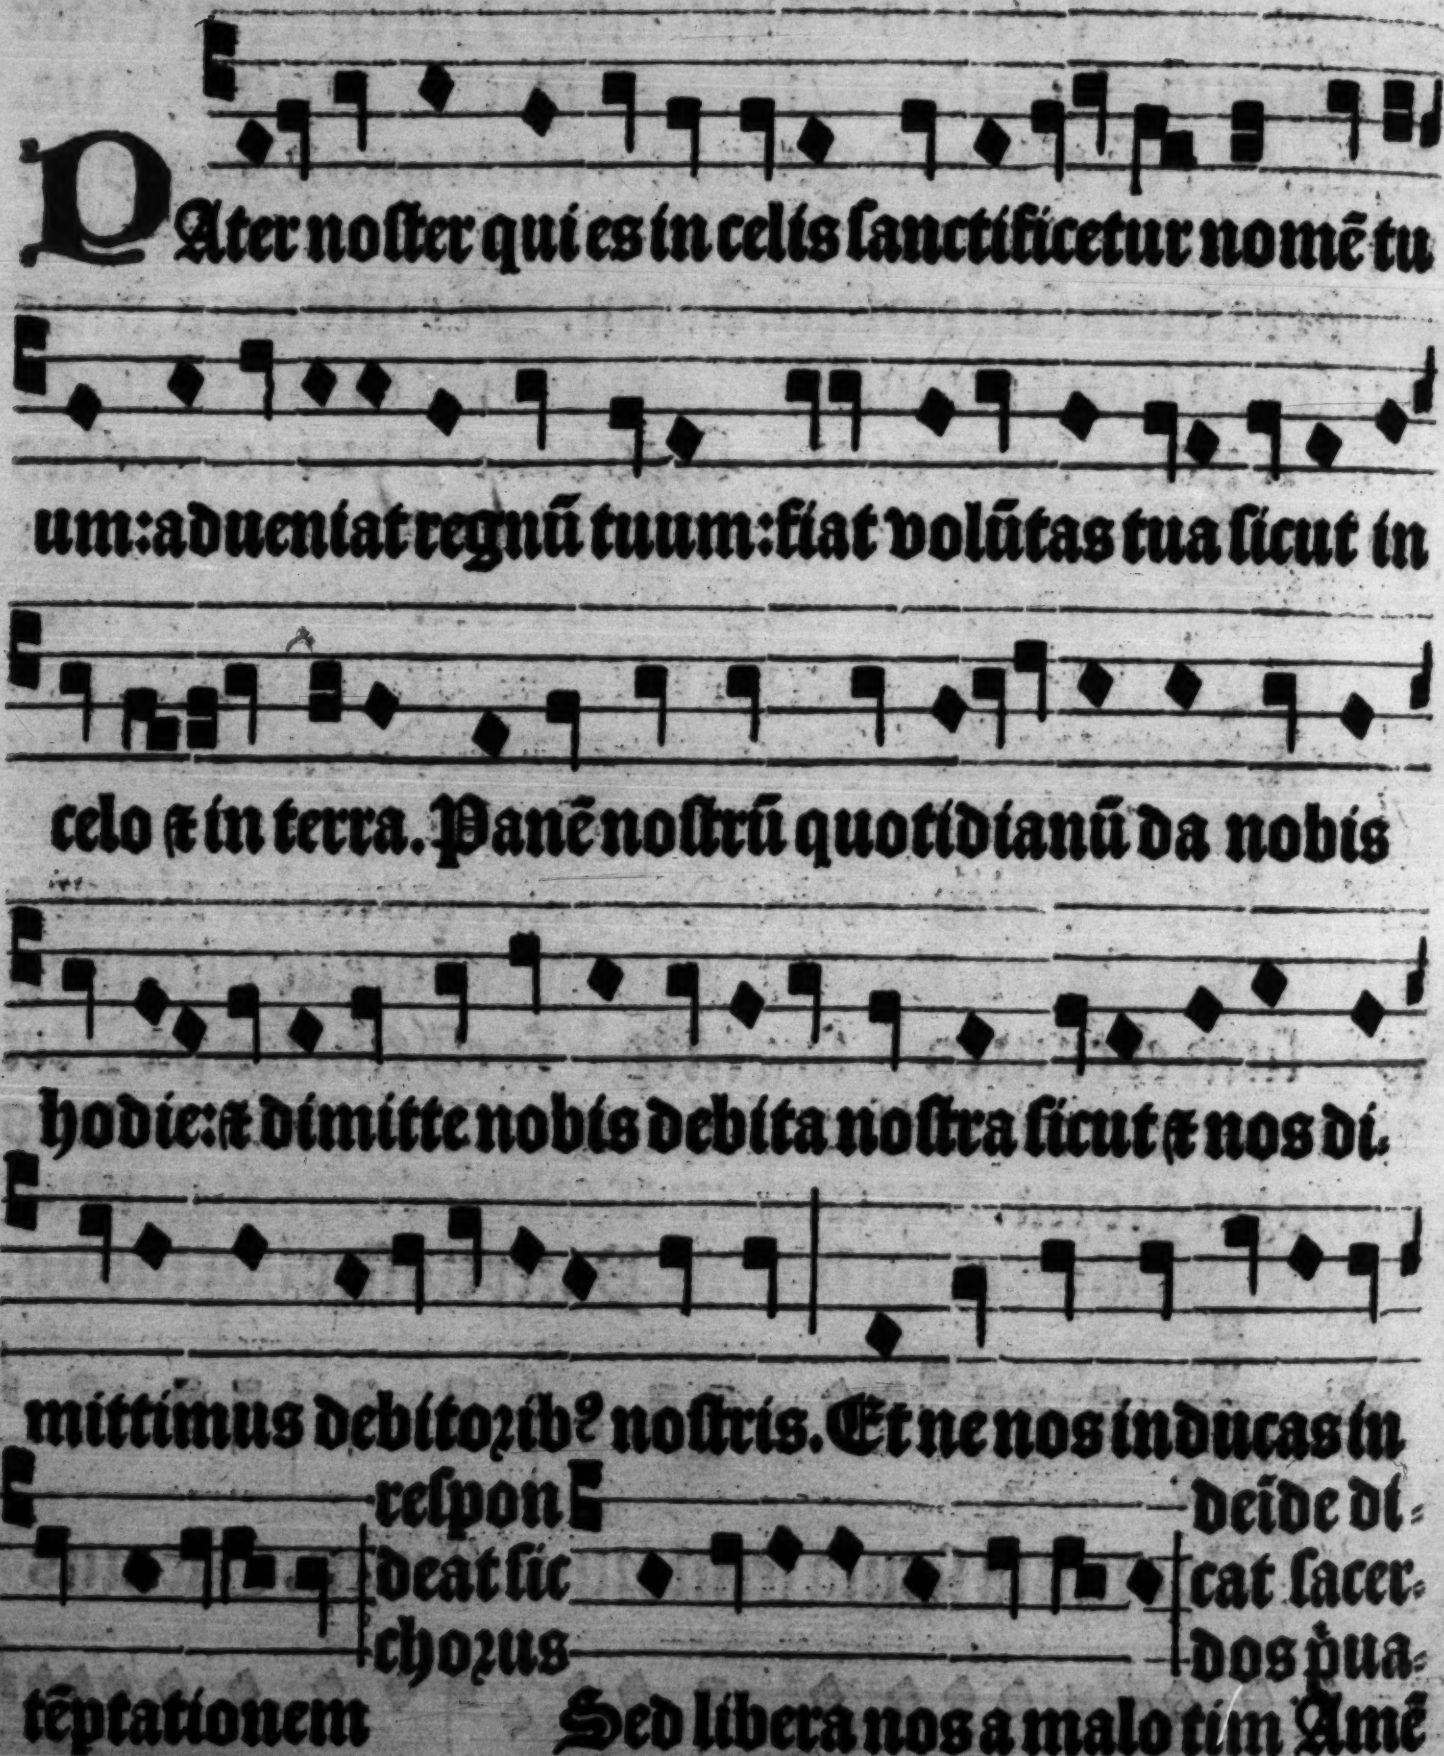 PAter noster qui es in celis sanctificetur nomē tu
um: adueniat regnū tuum: fiat volūtas tua sicut in
celo ⁊ in terra. Panē nostrū quotidianū da nobis
hodie: ⁊ dimitte nobis debita nostra sicut ⁊ nos di⸗
mittimus debitoribꝰ nostris. Et ne nos inducas in
tēptationem
respon
deat sic
chorus
Sed libera nos a malo
deīde di⸗
cat sacer⸗
dos p̄ua⸗
tim Amē